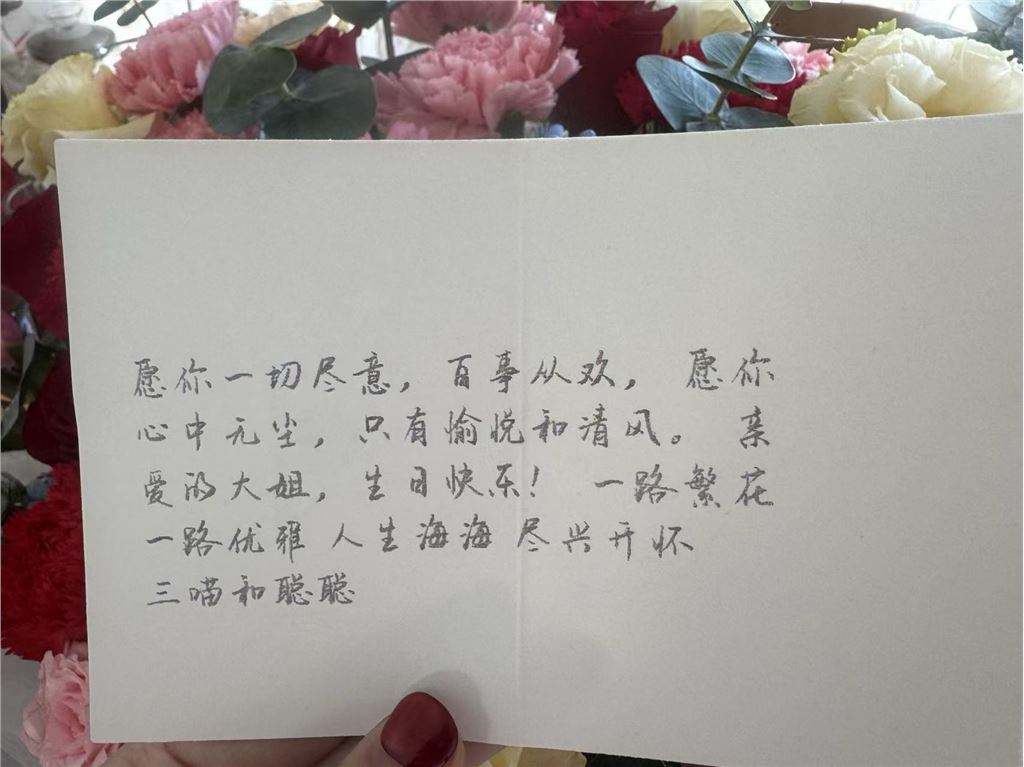 愿你一切尽意，百事从欢，愿你
心中无尘，只有愉悦和清风。亲
爱的大姐，生日快乐！一路繁花
一路优雅 人生海海 尽兴开怀
三喵和聪聪